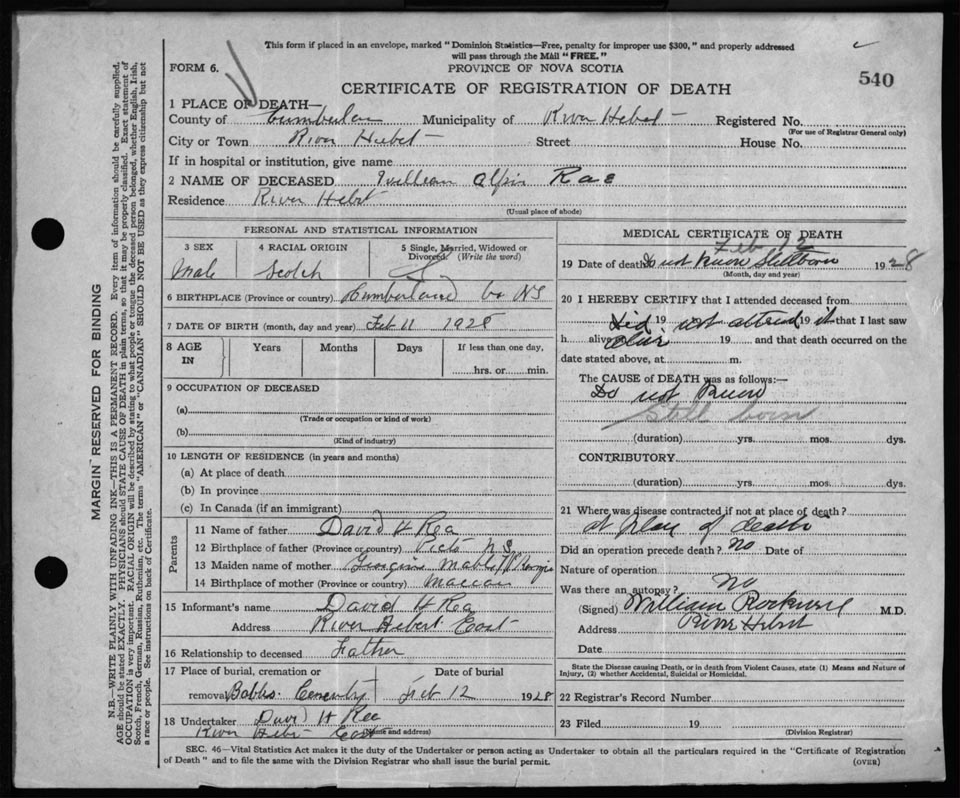 This form if placed in an envelope, marked "Dominion Statistics—Free, penalty for improper use $300," and properly addressed
will pass through the Mail "FREE."
FORM 6.
PROVINCE OF NOVA SCOTIA
540
CERTIFICATE OF REGISTRATION OF DEATH
1 PLACE OF DEATH—
County of Cumberlan Municipality of River Hebert Registered No.
(For use of Registrar General only)
City or Town River Hebert Street House No.
If in hospital or institution, give name
2 NAME OF DECEASED William Alpin Rae
Residence River Hebert
(Usual place of abode)
PERSONAL AND STATISTICAL INFORMATION
3 SEX 4 RACIAL ORIGIN 5 Single, Married, Widowed or
Divorced. (Write the word)
Male Scotch S
6 BIRTHPLACE (Province or country) Cumberland Co NS
7 DATE OF BIRTH (month, day and year) Feb 11 1928
8 AGE IN Years Months Days If less than one day,
hrs. or min.
9 OCCUPATION OF DECEASED
(a)
(Trade or occupation or kind of work)
(b)
(Kind of industry)
10 LENGTH OF RESIDENCE (in years and months)
(a) At place of death
(b) In province
(c) In Canada (if an immigrant)
Parents
11 Name of father David H Rea
12 Birthplace of father (Province or country) Picto N S
13 Maiden name of mother Georgina Mable
14 Birthplace of mother (Province or country) Maccan
15 Informant's name David H Rea
Address River Hebert East
16 Relationship to deceased Father
17 Place of burial, cremation or Date of burial
removal Cementy Feb 12 1928
18 Undertaker David H Rea
River Hebe East (Name and address)
MEDICAL CERTIFICATE OF DEATH
Feb 12
19 Date of death Do not Know Stillborn 1928
(Month, day and year)
20 I HEREBY CERTIFY that I attended deceased from
Did 19 not attend 19 it that I last saw
h alive on alive 19 and that death occurred on the
date stated above, at m.
The CAUSE of DEATH was as follows:—
Do not Know
Still born
(duration) yrs. mos. dys.
CONTRIBUTORY
(duration) yrs. mos. dys.
21 Where was disease contracted if not at place of death?
at place of death
Did an operation precede death? no Date of
Nature of operation
Was there an autopsy? No
(Signed) William Rockwell M.D.
Address River Hebert
Date
State the Disease causing Death, or in death from Violent Causes, state (1) Means and Nature of
Injury, (2) whether Accidental, Suicidal or Homicidal.
22 Registrar's Record Number
23 Filed 19
(Division Registrar)
SEC. 46—Vital Statistics Act makes it the duty of the Undertaker or person acting as Undertaker to obtain all the particulars required in the "Certificate of Registration
of Death" and to file the same with the Division Registrar who shall issue the burial permit.
(OVER)
MARGIN RESERVED FOR BINDING
N.B.—WRITE PLAINLY WITH UNFADING INK—THIS IS A PERMANENT RECORD. Every item of information should be carefully supplied.
AGE should be stated EXACTLY. PHYSICIANS should STATE CAUSE OF DEATH in plain terms, so that it may be properly classified. Exact statement of
OCCUPATION is very important. RACIAL ORIGIN will be described by stating to what people or tongue the deceased person belonged, whether English, Irish,
Scotch, French, German, Russian, Ruthenian, etc. The terms "AMERICAN" or "CANADIAN" SHOULD NOT BE USED as they express citizenship but not
a race or people. See instructions on back of Certificate.